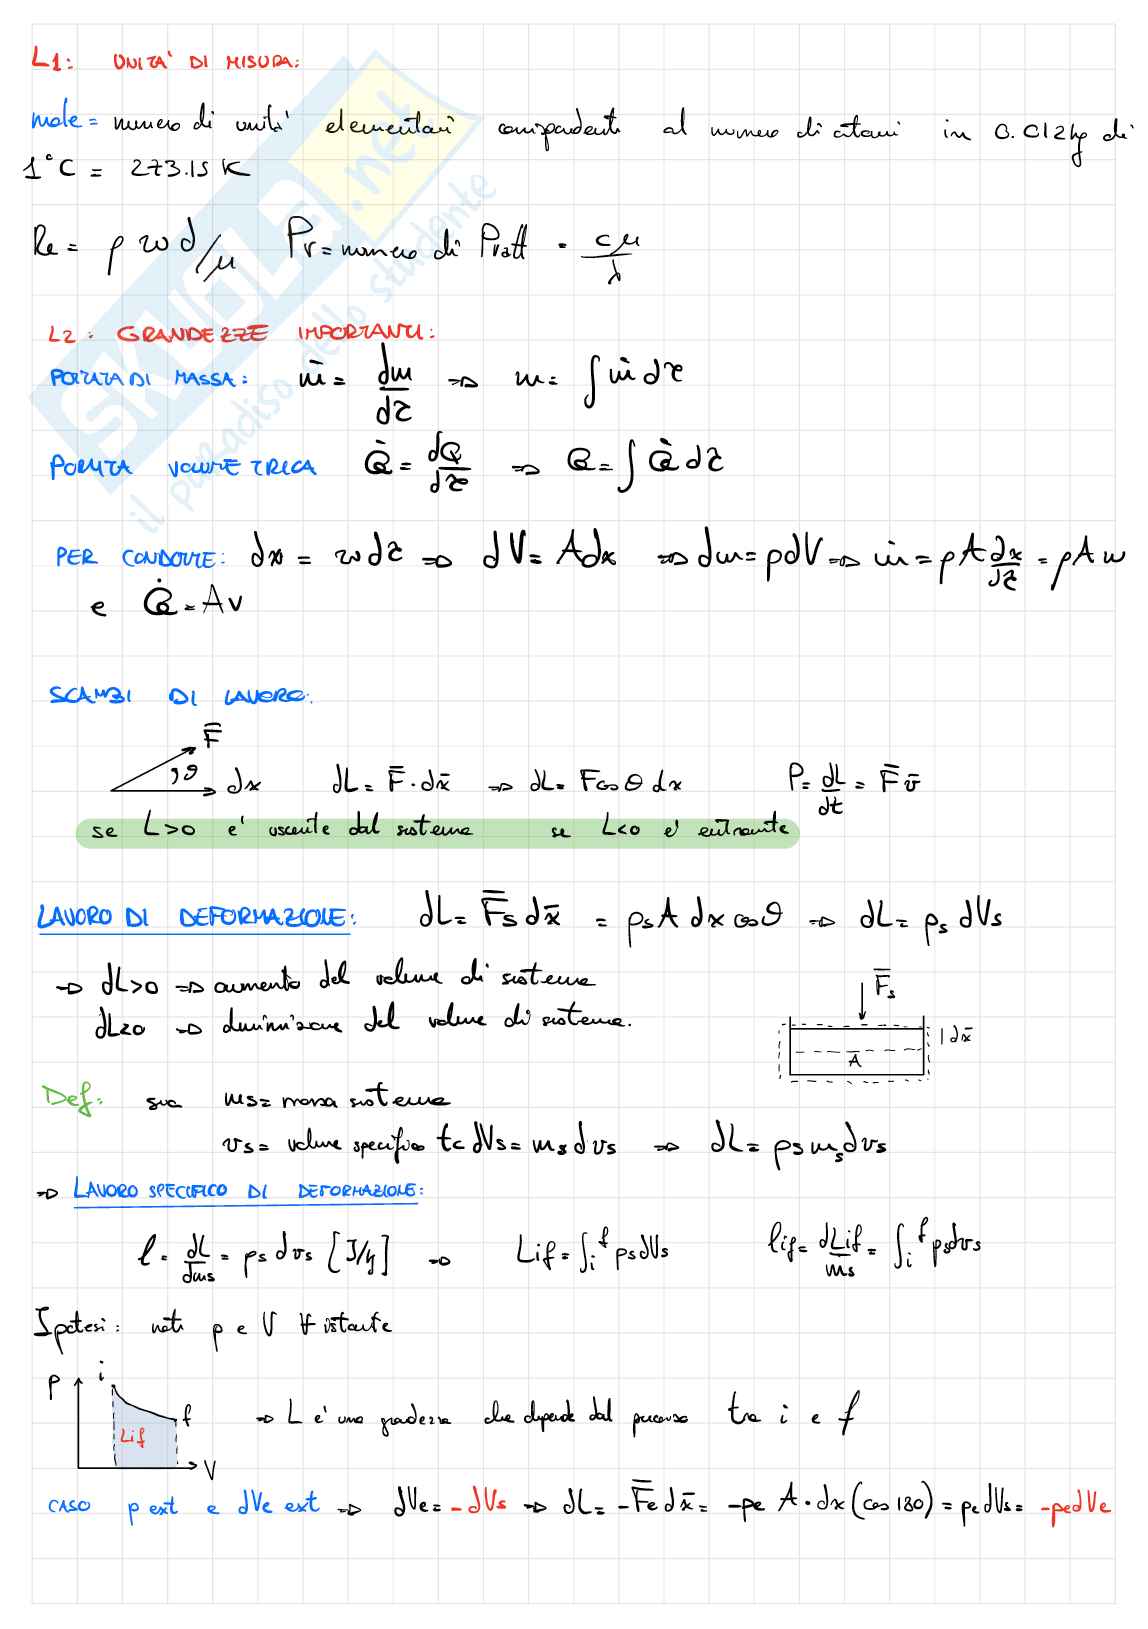 L1: UNITA' DI MISURA:
mole = numero di unita' elementari corrispondenti al numero di atomi in 0.012kg di
1°C = 273.15 K
Re = ρ w d/μ Pr = numero di Pratt = cμ/λ
L2: GRANDEZZE IMPORTANTI:
PORTATA DI MASSA: ṁ = dm/dτ ⇒ m = ∫ ṁ dτ
PORTATA VOLUMETRICA Q̇ = dQ/dτ ⇒ Q = ∫ Q̇ dτ
PER CONDOTTE: dx = w dτ ⇒ dV = A dx ⇒ dm = ρdV ⇒ ṁ = ρA dx/dτ = ρA w
e Q̇ = A v
SCAMBI DI LAVORO:
F̄
θ dx dL = F̄ · dx̄ ⇒ dL = F cos θ dx P = dL/dt = F̄ v̄
se L>0 e' uscente dal sistema se L<0 e' entrante
LAVORO DI DEFORMAZIONE: dL = F̄s dx̄ = ps A dx cos θ ⇒ dL = ps dVs
⇒ dL>0 ⇒ aumento del volume di sistema
dL<0 ⇒ diminuzione del volume di sistema.
F̄s
dx̄
A
Def: sia ms = massa sistema
vs = volume specifico tc dVs = ms dvs ⇒ dL = ps ms dvs
⇒ LAVORO SPECIFICO DI DEFORMAZIONE:
l = dL/dms = ps dvs [J/kg] ⇒ Lif = ∫i^f ps dVs lif = dLif/ms = ∫i^f ps dvs
Ipotesi: noti p e V ∀ istante
p i
f
Lif
V
⇒ L e' una grandezza che dipende dal percorso tra i e f
CASO p ext e dVe ext ⇒ dVe = -dVs ⇒ dL = -F̄e dx̄ = -pe A · dx (cos 180) = pe dVs = -pe dVe
SKUOLA.net
il paradiso dello studente